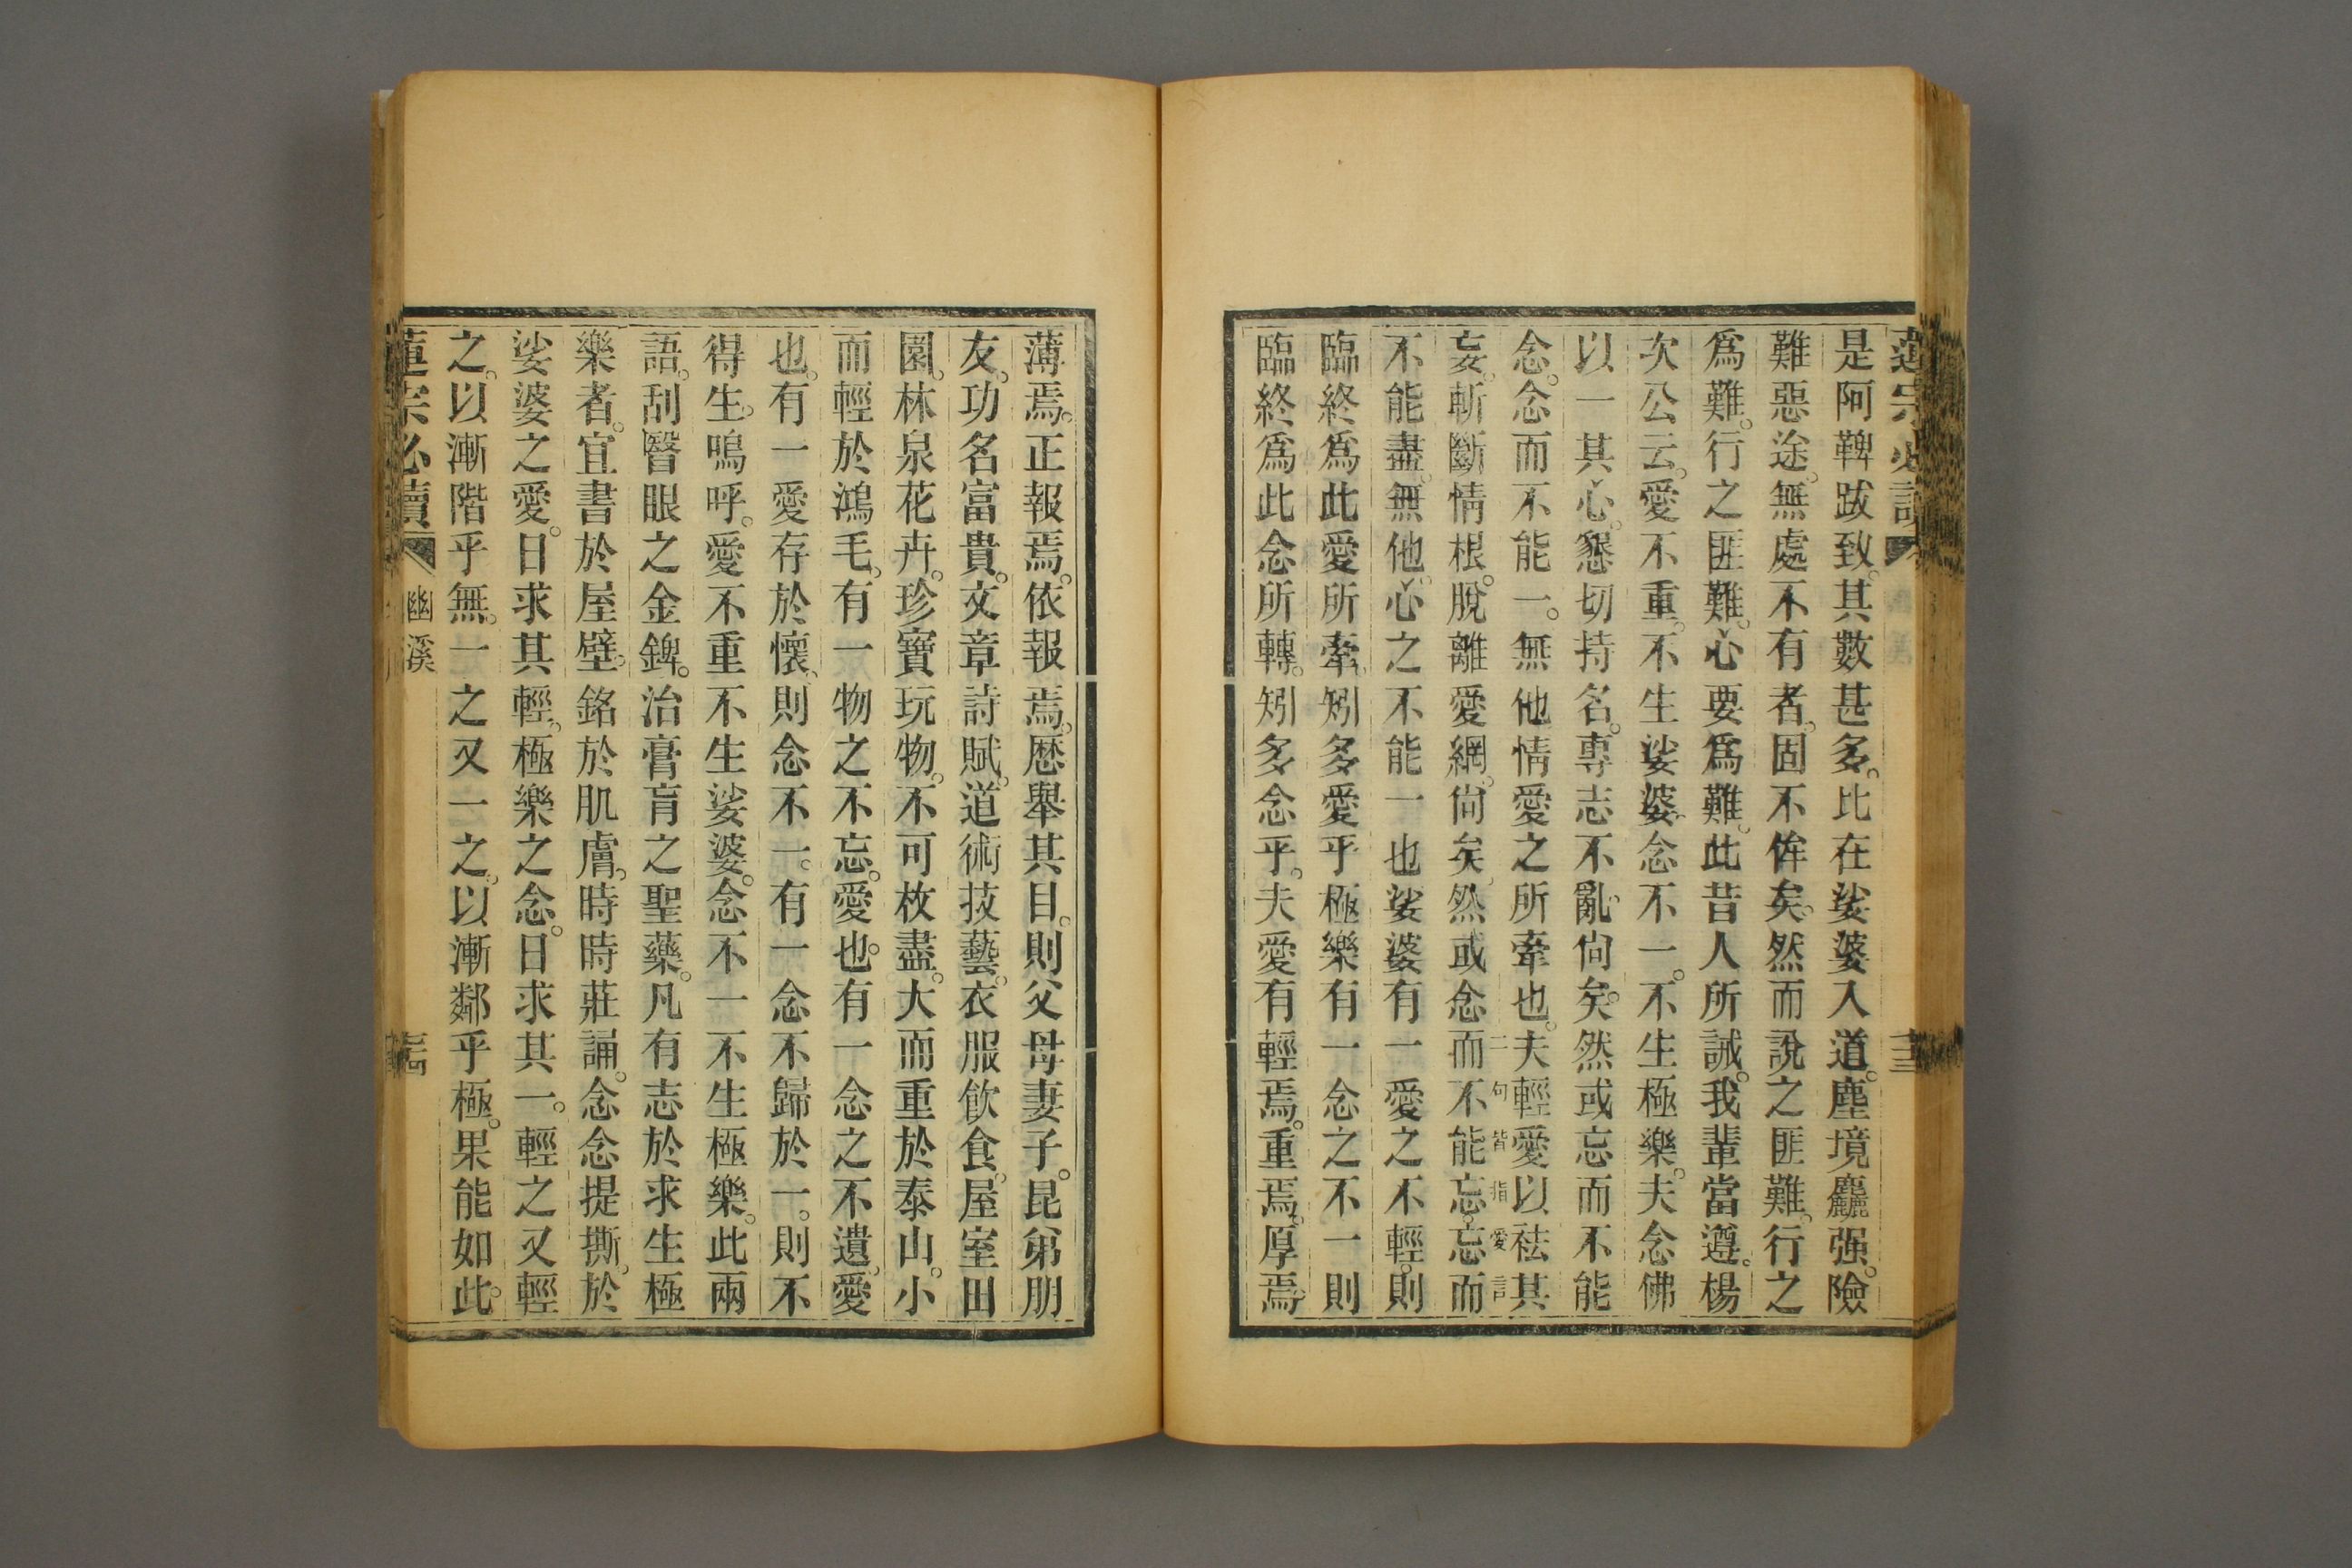 蓮宗必讀
十三
是阿鞞跋致。其數甚多。比在娑婆入道。塵境麤强。險
難惡途。無處不有者。固不侔矣。然而說之匪難。行之
爲難。行之匪難。心要爲難。此昔人所誡。我輩當遵。楊
次公云。愛不重。不生娑婆。念不一。不生極樂。夫念佛
以一其心。懇切持名。專志不亂。尙矣。然或忘而不能
念。念而不能一。無他情愛之所牽也。夫輕愛以祛其
二句皆指愛言
妄。斬斷情根。脫離愛網。尙矣。然或念而不能忘。忘而
不能盡。無他。心之不能一也。娑婆有一愛之不輕。則
臨終爲此愛所牽。矧多愛乎。極樂有一念之不一。則
臨終爲此念所轉。矧多念乎。夫愛有輕焉。重焉。厚焉。
薄焉。正報焉。依報焉。歷舉其目。則父母妻子。昆弟朋
友。功名富貴。文章詩賦。道術技藝。衣服飮食。屋室田
園。林泉花卉。珍寶玩物。不可枚盡。大而重於泰山。小
而輕於鴻毛。有一物之不忘。愛也。有一念之不遺。愛
也。有一愛存於懷。則念不一。有一念不歸於一。則不
得生。嗚呼。愛不重不生娑婆。念不一不生極樂。此兩
語。刮瞖眼之金錍。治膏肓之聖藥。凡有志於求生極
樂者。宜書於屋壁。銘於肌膚。時時莊誦。念念提撕。於
娑婆之愛。日求其輕。極樂之念。日求其一。輕之又輕
之。以漸階乎無。一之又一之。以漸鄰乎極。果能如此。
蓮宗必讀
幽溪